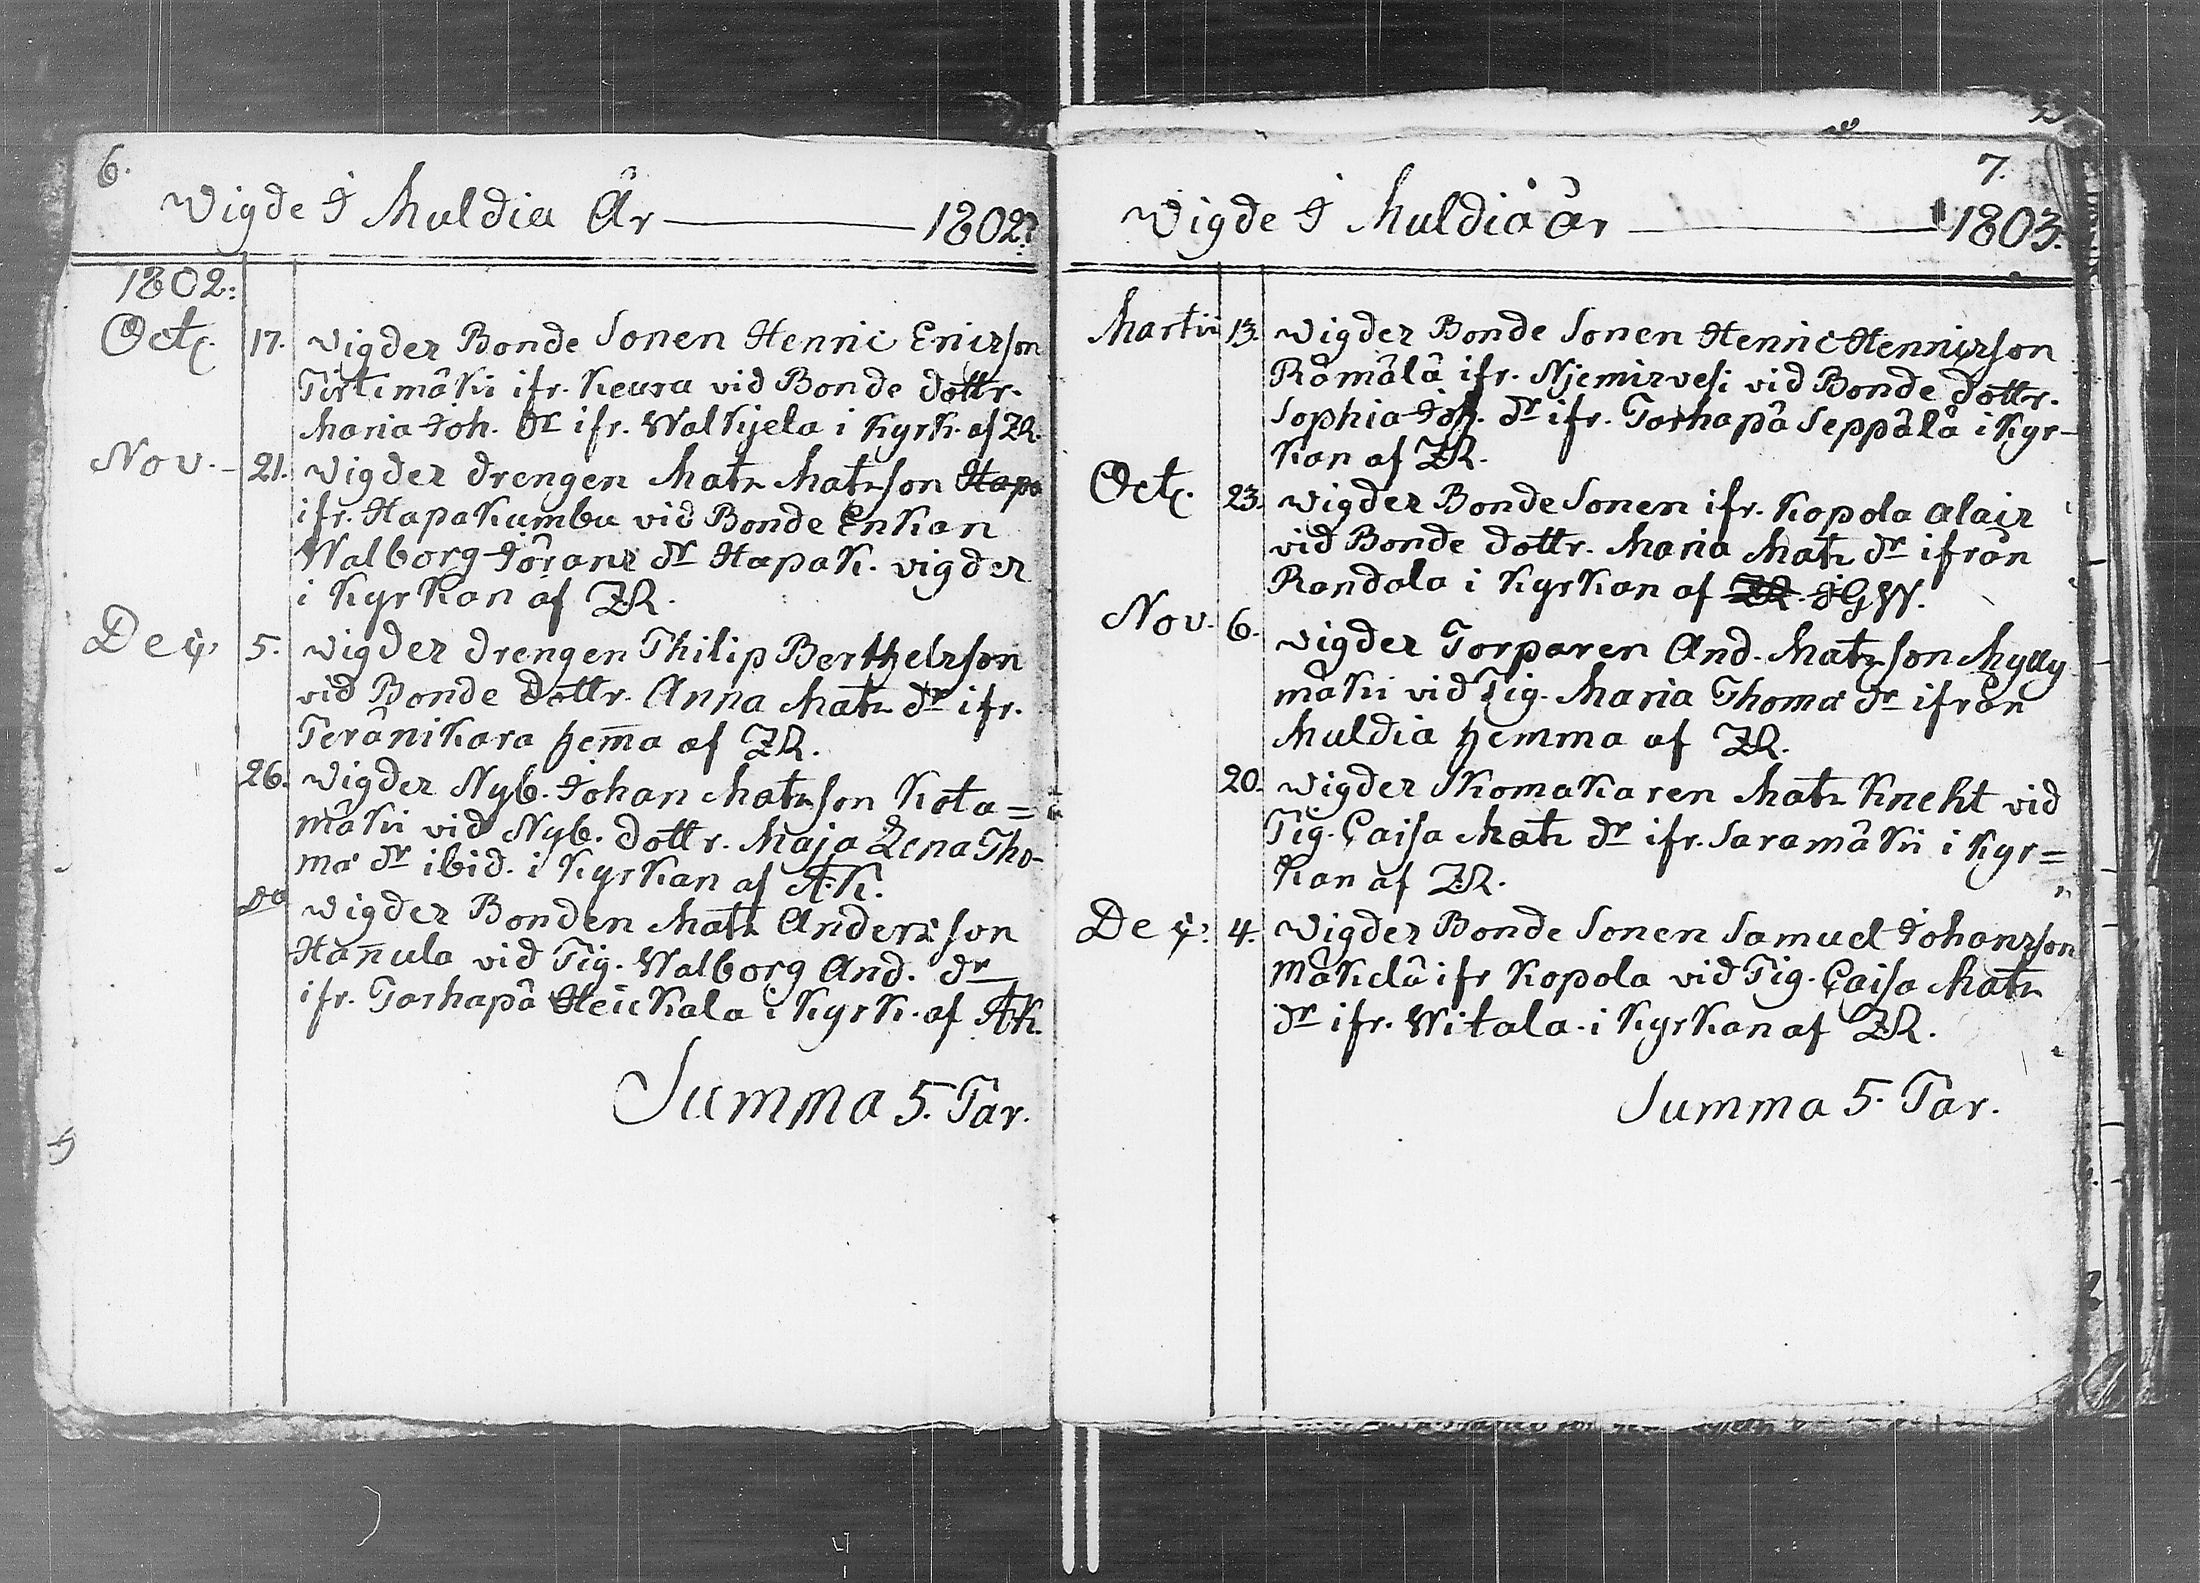 6.
Wigde I Muldia År — 1802.
1802.
Oct. 17. Wigdes Bonde Sonen Henric Ericsson
Tirtimäki ifr. Keuru vid Bonde dottr.
Maria Joh. dr ifr. Walkjela i Kyrk. af ZR.
Nov. 21. Wigdes drengen Mats Matsson Hapa
ifr. Hapakumbu vid Bonde Enkan
Walborg Jörans dr Hapak. vigdes
i Kyrkan af ZR.
Dec. 5. Wigdes drengen Philip Berthelsson
vid Bonde dottr. Anna Mats dr ifr.
Teränikara hem̅a af ZR.
26. Wigdes Nyb. Johan Matsson Kota=
mäki vid Nyb. dottr. Maja Lena Tho-
ma dr ibid. i Kyrkan af AK.
do Wigdes Bonden Mats Andersson
Han̅ula vid Pig. Walborg And. dr
ifr. Torhapä Heickala i Kyrk. af AK.
Summa 5. Par.
7.
Wigde I Muldia år — 1803.
Martii 13. Wigdes Bonde Sonen Henric Henricsson
Rämälä ifr. Njemisvesi vid Bonde dottr.
Sophia Joh. dr ifr. Torhapä Seppälä i Kyr-
kan af ZR.
Oct. 23. Wigdes Bonde Sonen ifr. Kopola Alais
vid Bonde dottr. Maria Mats dr ifrån
Randala i Kyrkan af ZR. IGW.
Nov. 6. Wigdes Torparen And. Matsson Mylly
mäki vid Pig. Maria Thoma dr ifrån
Muldia hemma af ZR.
20. Wigdes Skomakaren Mats Kneht vid
Pig. Caisa Mats dr ifr. Saramäki i Kyr=
kan af ZR.
Dec. 4. Wigdes Bonde Sonen Samuel Johansson
Mäkelä ifr Kopola vid Pig. Caisa Mats
dr ifr. Witala. i Kyrkan af ZR.
Summa 5. Par.